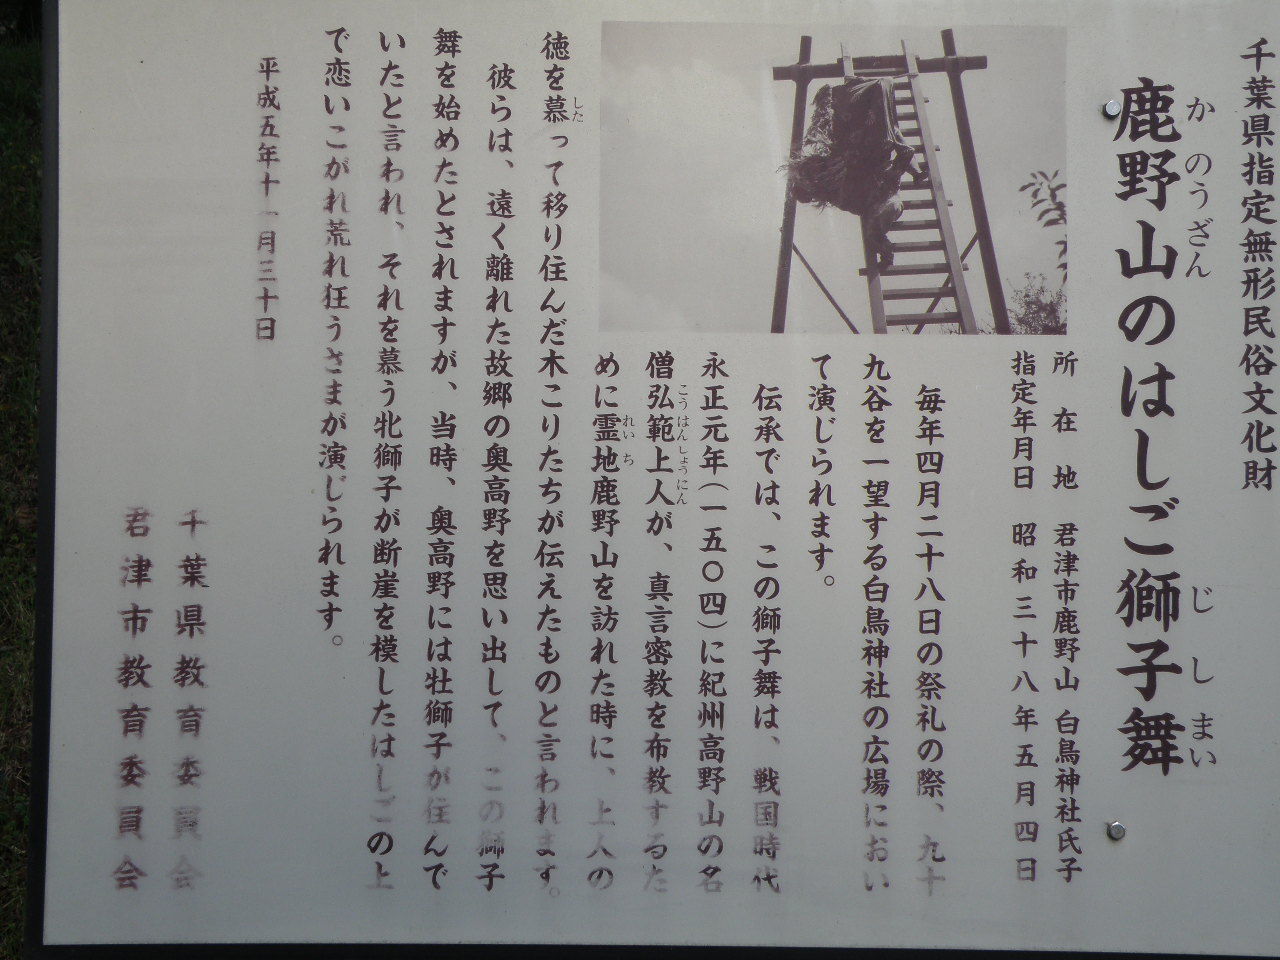 千葉県指定無形民俗文化財
鹿野山のはしご獅子舞
かのうざん じしまい
所在地 君津市鹿野山 白鳥神社氏子
指定年月日 昭和三十八年五月四日
毎年四月二十八日の祭礼の際、九十
九谷を一望する白鳥神社の広場におい
て演じられます。
伝承では、この獅子舞は、戦国時代
永正元年(一五〇四)に紀州高野山の名
僧弘範上人が、真言密教を布教するた
こうはんしょうにん
めに霊地鹿野山を訪れた時に、上人の
れいち
徳を慕って移り住んだ木こりたちが伝えたものと言われます。
した
彼らは、遠く離れた故郷の奥高野を思い出して、この獅子
舞を始めたとされますが、当時、奥高野には牡獅子が住んで
いたと言われ、それを慕う牝獅子が断崖を模したはしごの上
で恋いこがれ荒れ狂うさまが演じられます。
平成五年十一月三十日
千葉県教育委員会
君津市教育委員会